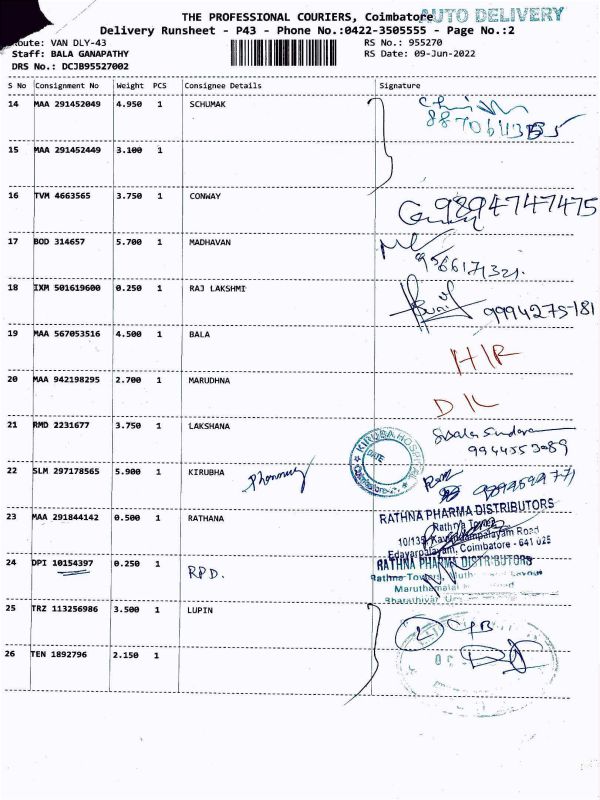 THE PROFESSIONAL COURIERS, Coimbatore AUTO DELIVERY
Delivery Runsheet - P43 - Phone No.:0422-3505555 - Page No.:2
Route: VAN DLY-43 RS No.: 955270
Staff: BALA GANAPATHY RS Date: 09-Jun-2022
DRS No.: DCJB95527002
S No Consignment No Weight PCS Consignee Details Signature
14 MAA 291452049 4.950 1 SCHUMAK
15 MAA 291452449 3.100 1
16 TVM 4663565 3.750 1 CONWAY 9894747475
17 BOD 314657 5.700 1 MADHAVAN
9566171321.
18 IXM 501619600 0.250 1 RAJ LAKSHMI 9994275181
19 MAA 567053516 4.500 1 BALA H/R
20 MAA 942198295 2.700 1 MARUDHNA D/L
21 RMD 2231677 3.750 1 LAKSHANA
KIRUBA HOSPITAL
DATE
22 SLM 297178565 5.900 1 KIRUBHA
23 MAA 291844142 0.500 1 RATHANA
RATHNA PHARMA DISTRIBUTORS
Rathna Tower
Edayarpalayam, Coimbatore - 641 025
24 DPI 10154397 0.250 1 RPD.
RATHNA PHARMA DISTRIBUTORS
Rathna Towers,
Maruthamalai Road
25 TRZ 113256986 3.500 1 LUPIN
2 CPB
26 TEN 1892796 2.150 1